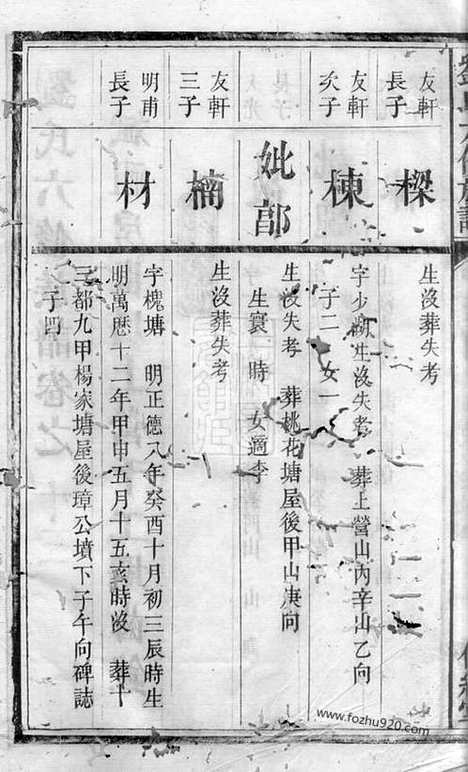 友軒長子
樑
生沒葬失考
友軒次子
棟
字少 生沒失考 葬上營山內辛山乙向
子二 女一
妣鄒
生沒失考 葬桃花塘屋後甲山庚向
生寰 時 女適李
友軒三子
楠
生沒葬失考
明甫長子
材
字槐塘 明正德八年癸酉十月初三辰時生
明萬歷十二年甲申五月十五亥時沒 葬十
三都九甲楊家塘屋後璋公墳下子午向碑誌
子四
www.fozhu920.com